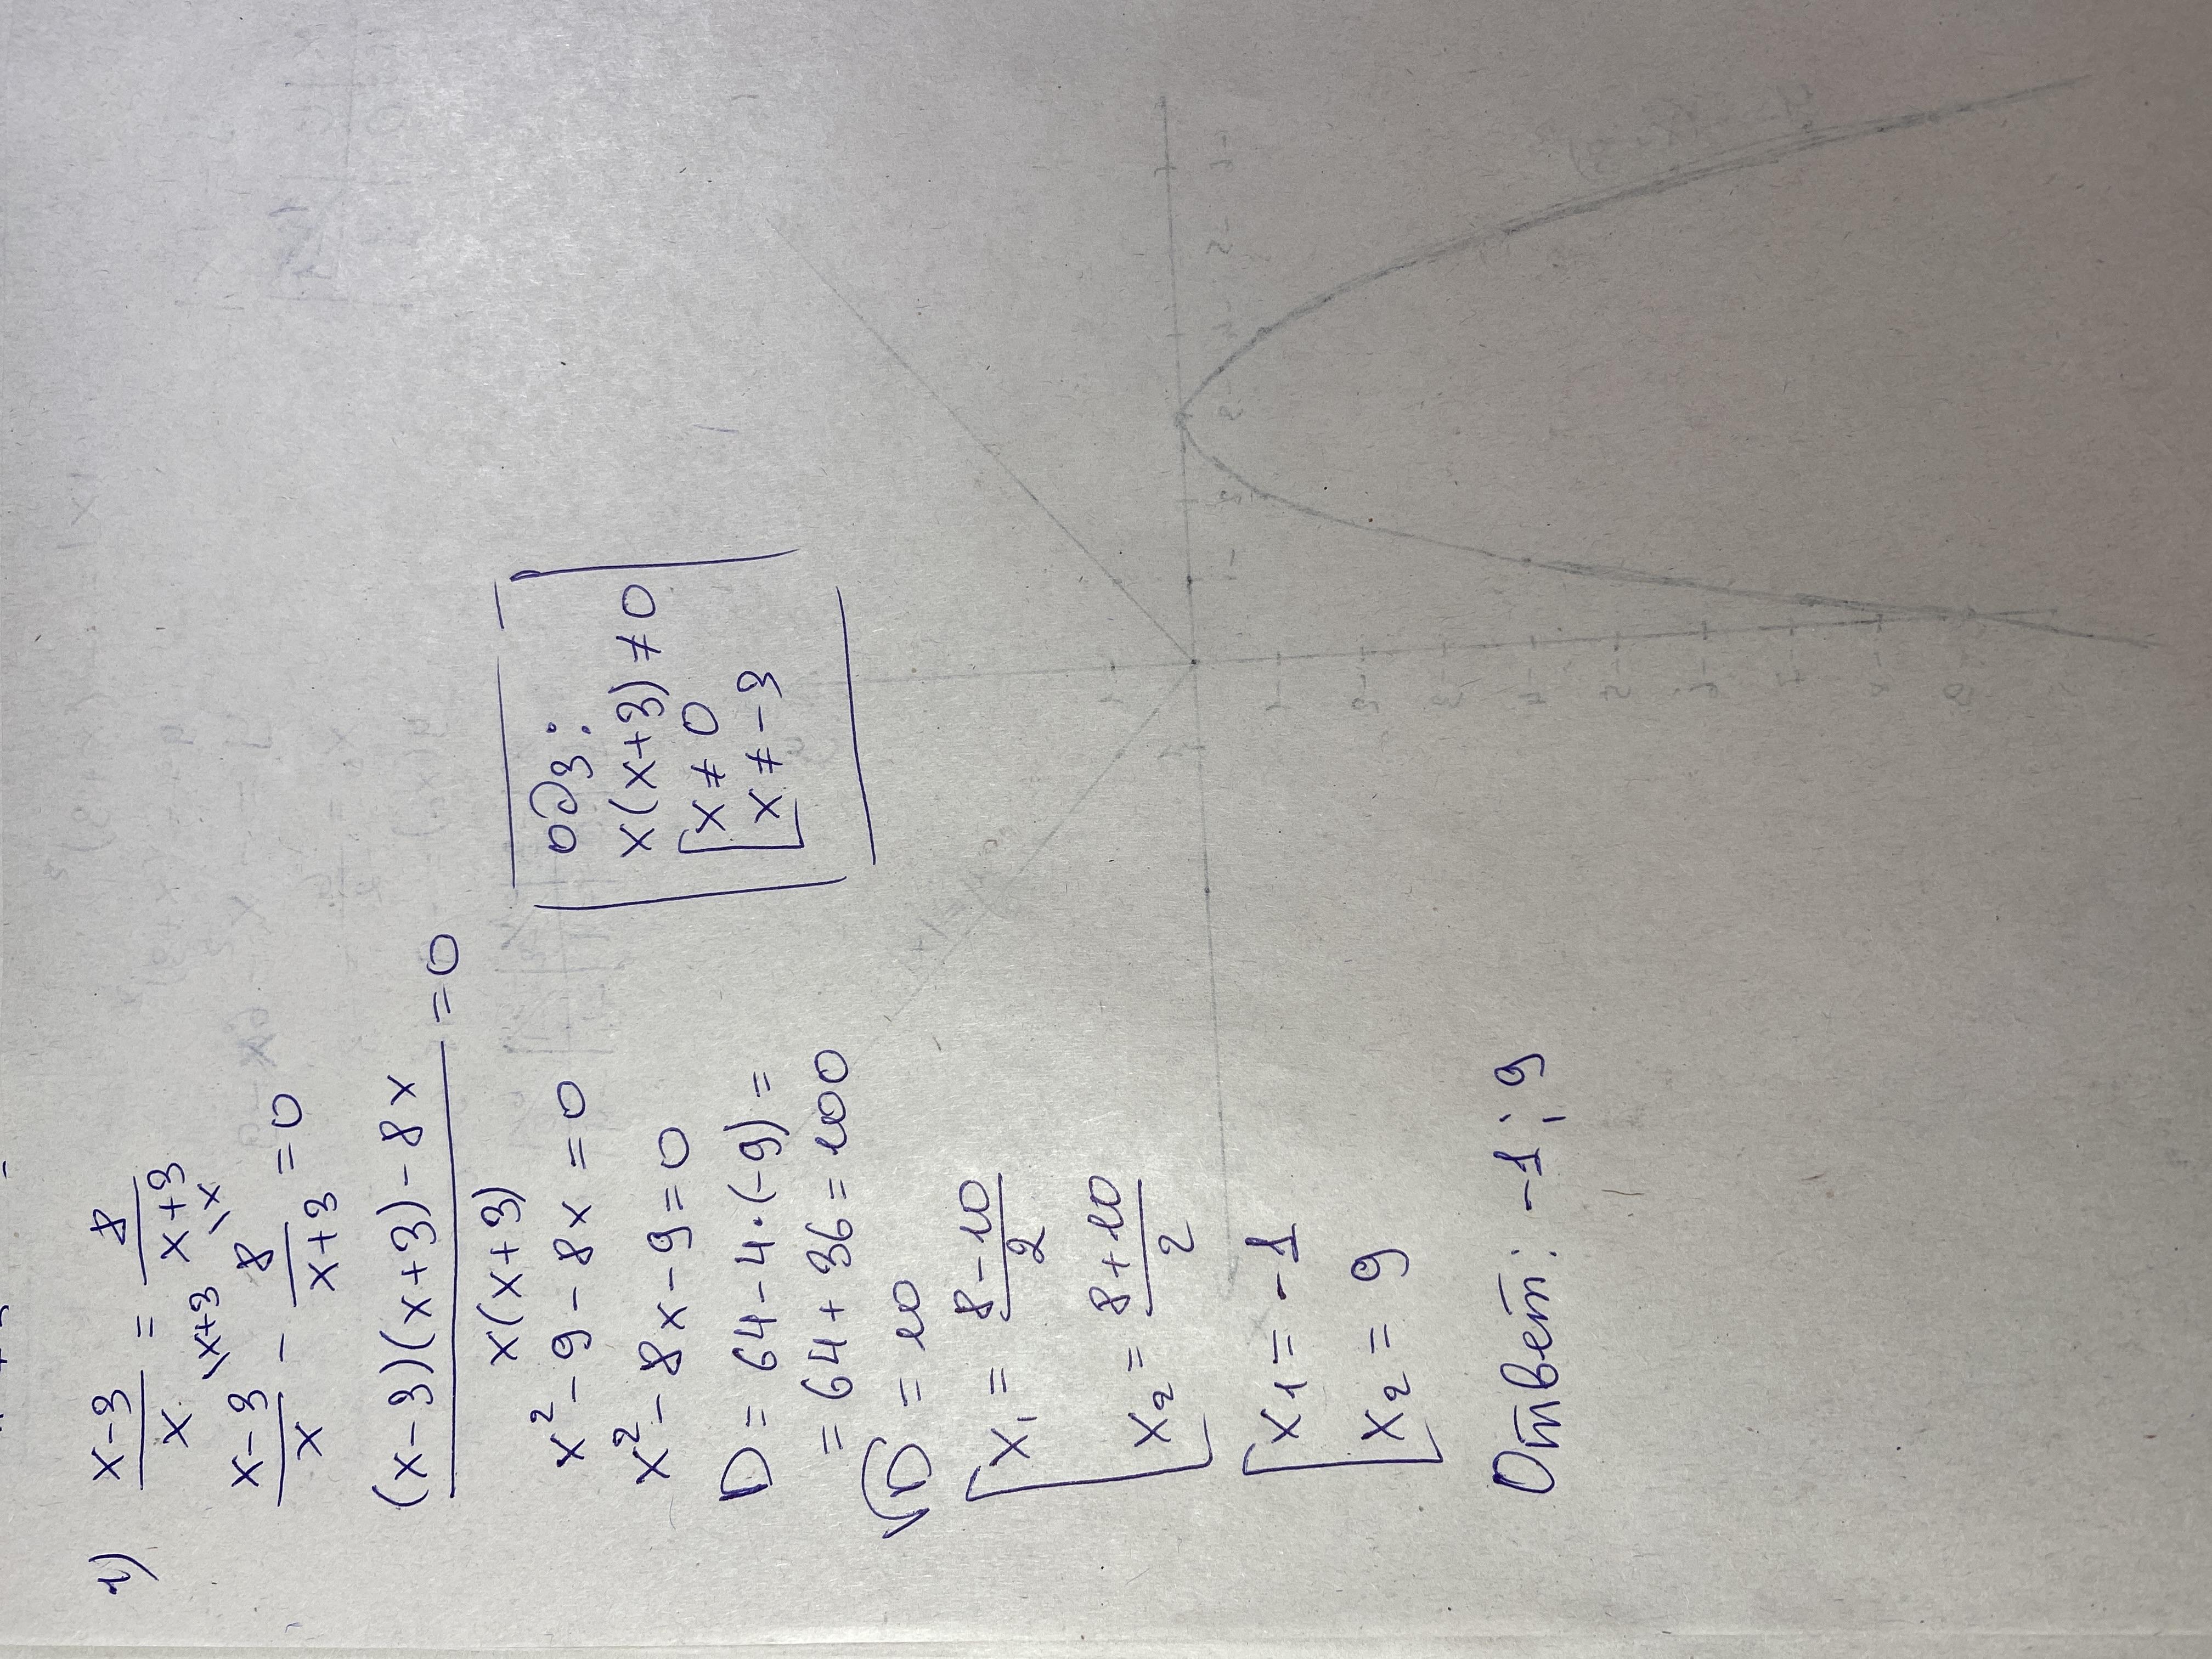 1) x-3/x = 8/x+3
x-3/x \x+3 - 8/x+3 \x = 0
(x-3)(x+3)-8x/x(x+3) = 0
x²-9-8x=0
x²-8x-9=0
D=64-4·(-9)=
=64+36=100
√D=10
x₁=8-10/2
x₂=8+10/2
x₁=-1
x₂=9
Ответ: -1; 9
одз:
x(x+3)≠0
x≠0
x≠-3